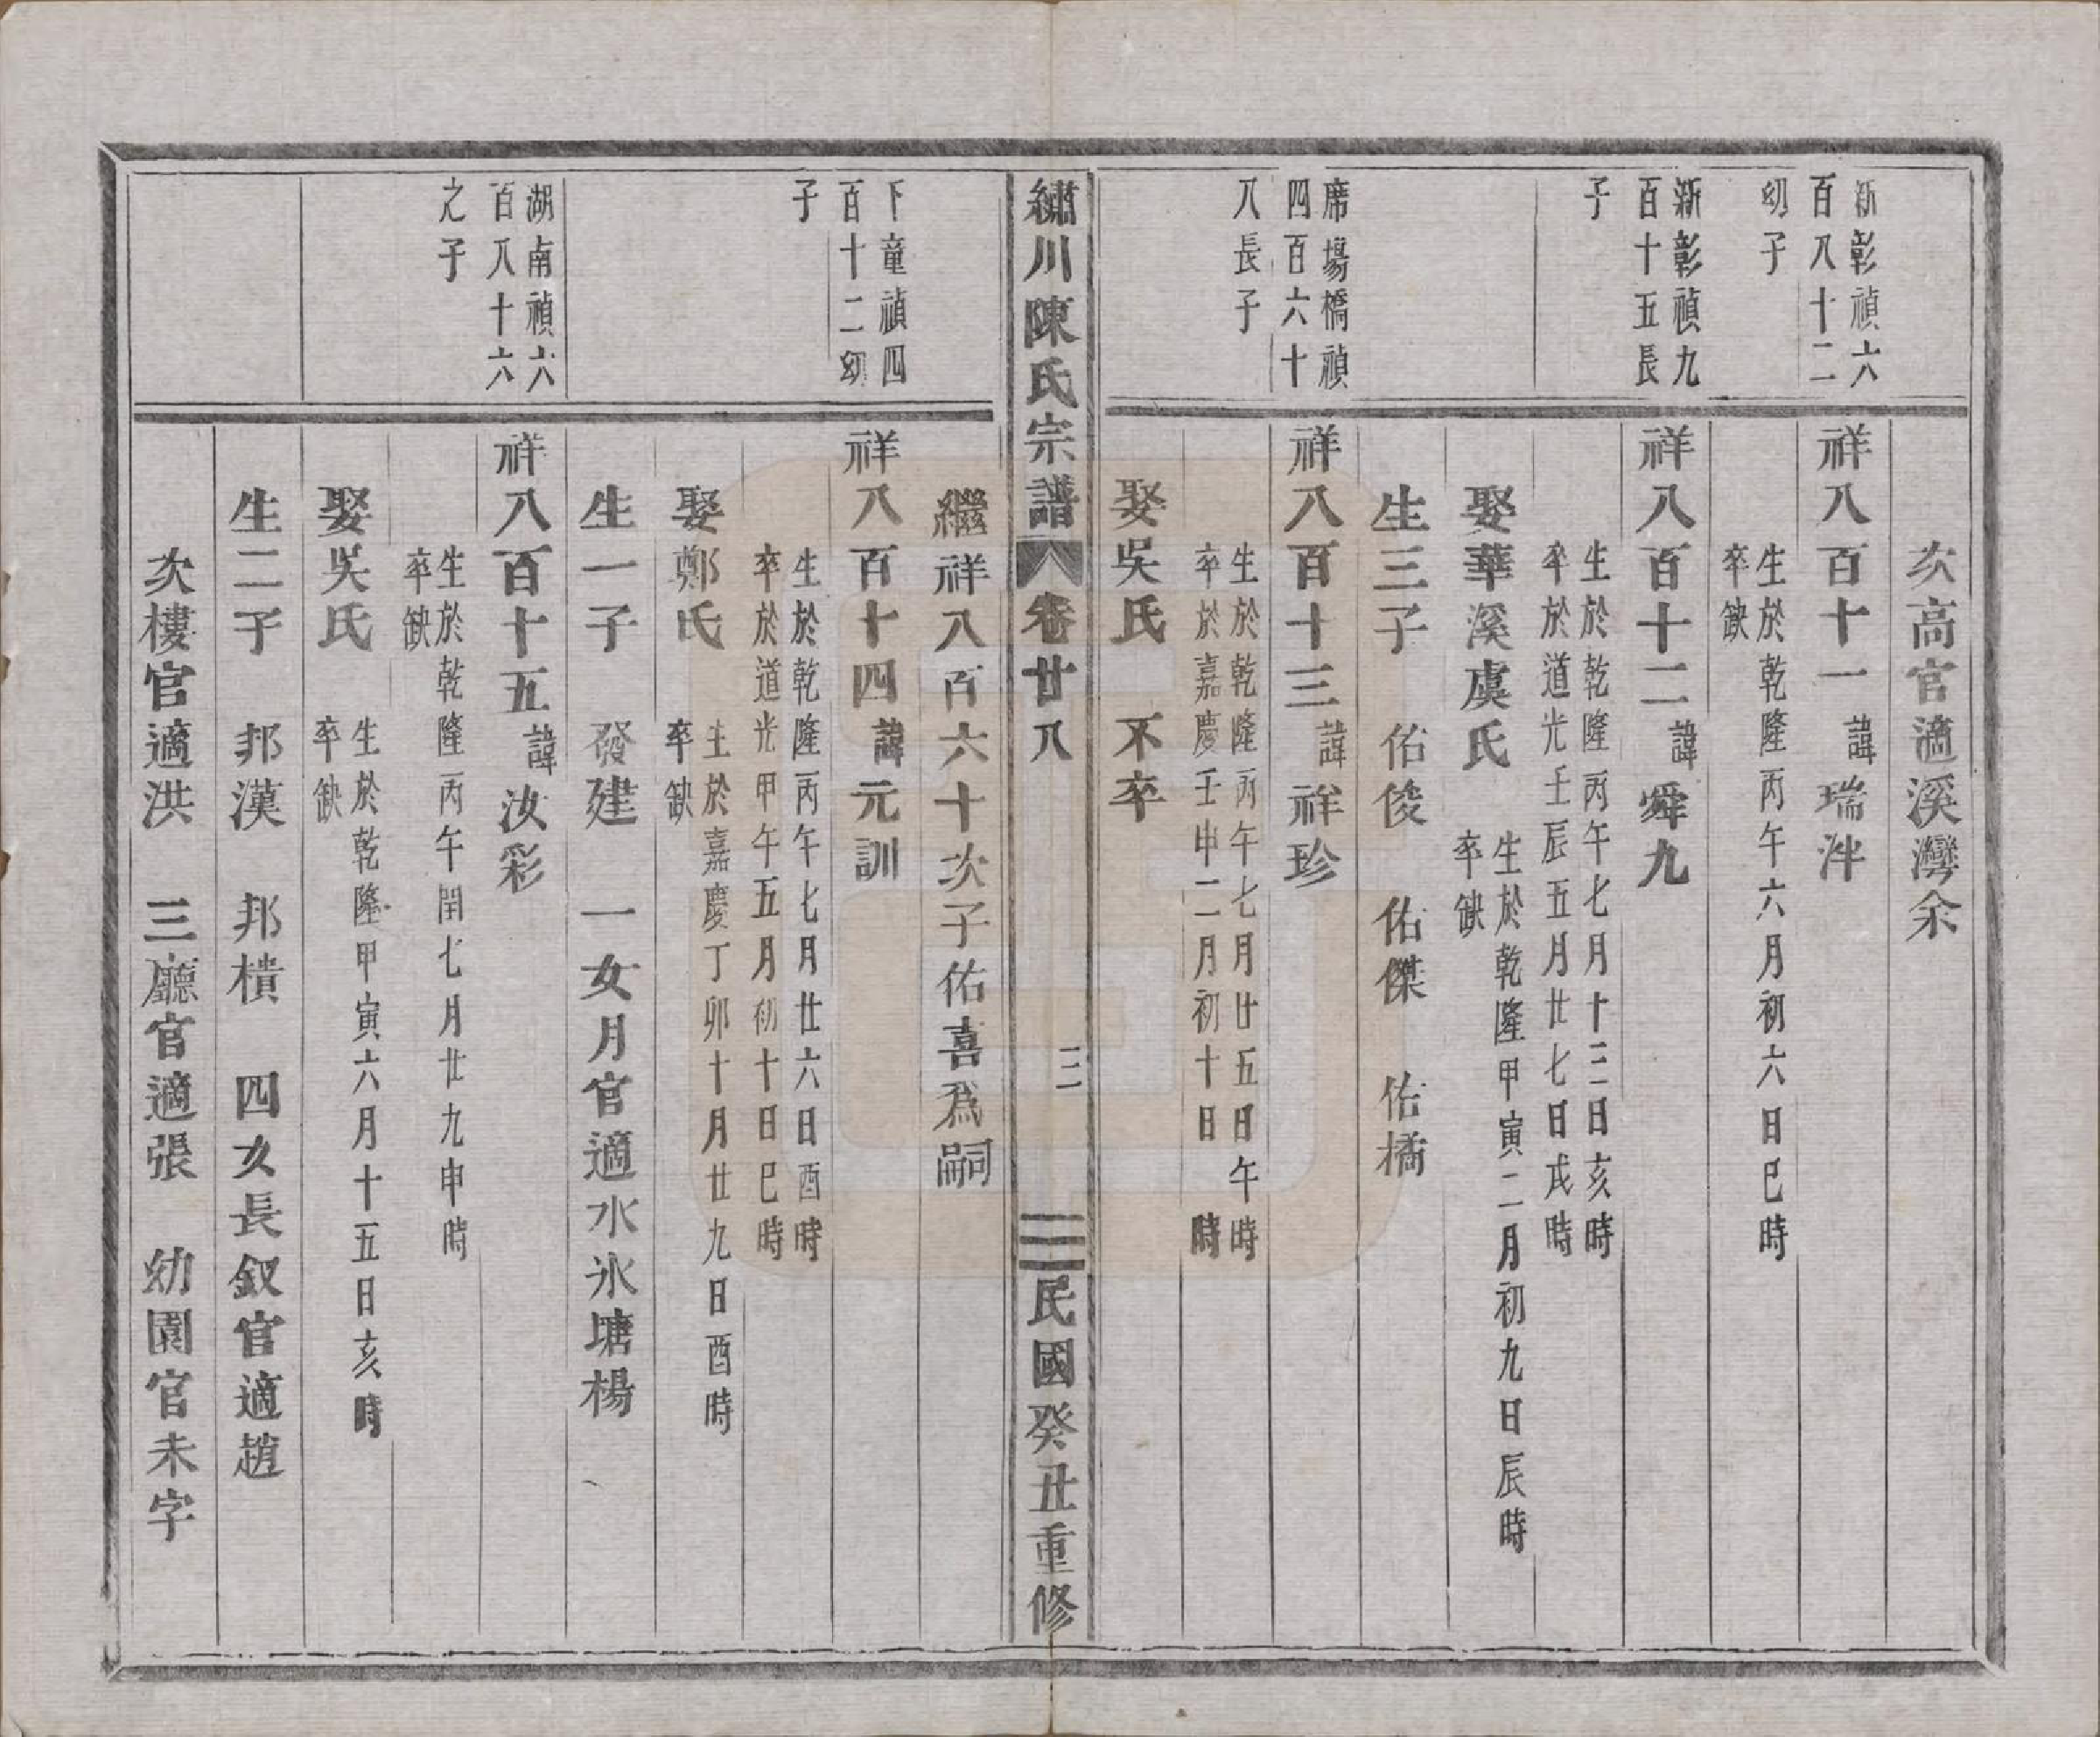 次高官適溪灣余
新彰禎六
百八十二
幼子
祥八百十一 諱瑞泮
生於乾隆丙午六月初六日巳時
卒缺
新彰禎九
百十五長
子
祥八百十二 諱舜九
生於乾隆丙午七月十三日亥時
卒於道光壬辰五月廿七日戌時
娶華溪虞氏
生於乾隆甲寅二月初九日辰時
卒缺
生三子 佑俊 佑傑 佑橘
席場橋禎
四百六十
八長子
祥八百十三 諱祥珍
生於乾隆丙午七月廿五日午時
卒於嘉慶壬申二月初十日 時
娶吳氏 不卒
繡川陳氏宗譜 卷廿八 三 民國癸丑重修
繼祥八百六十次子佑喜爲嗣
下童禎四
百十二幼
子
祥八百十四 諱元訓
生於乾隆丙午七月廿六日酉時
卒於道光甲午五月初十日巳時
娶鄭氏
生於嘉慶丁卯十月廿九日酉時
卒缺
生一子 發建 一女月官適水氷塘楊
湖南禎六
百八十六
之子
祥八百十五 諱汝彩
生於乾隆丙午閏七月廿九申時
卒缺
娶吳氏
生於乾隆甲寅六月十五日亥時
卒缺
生二子 邦漢 邦橨 四女長釵官適趙
次樓官適洪 三廳官適張 幼園官未字